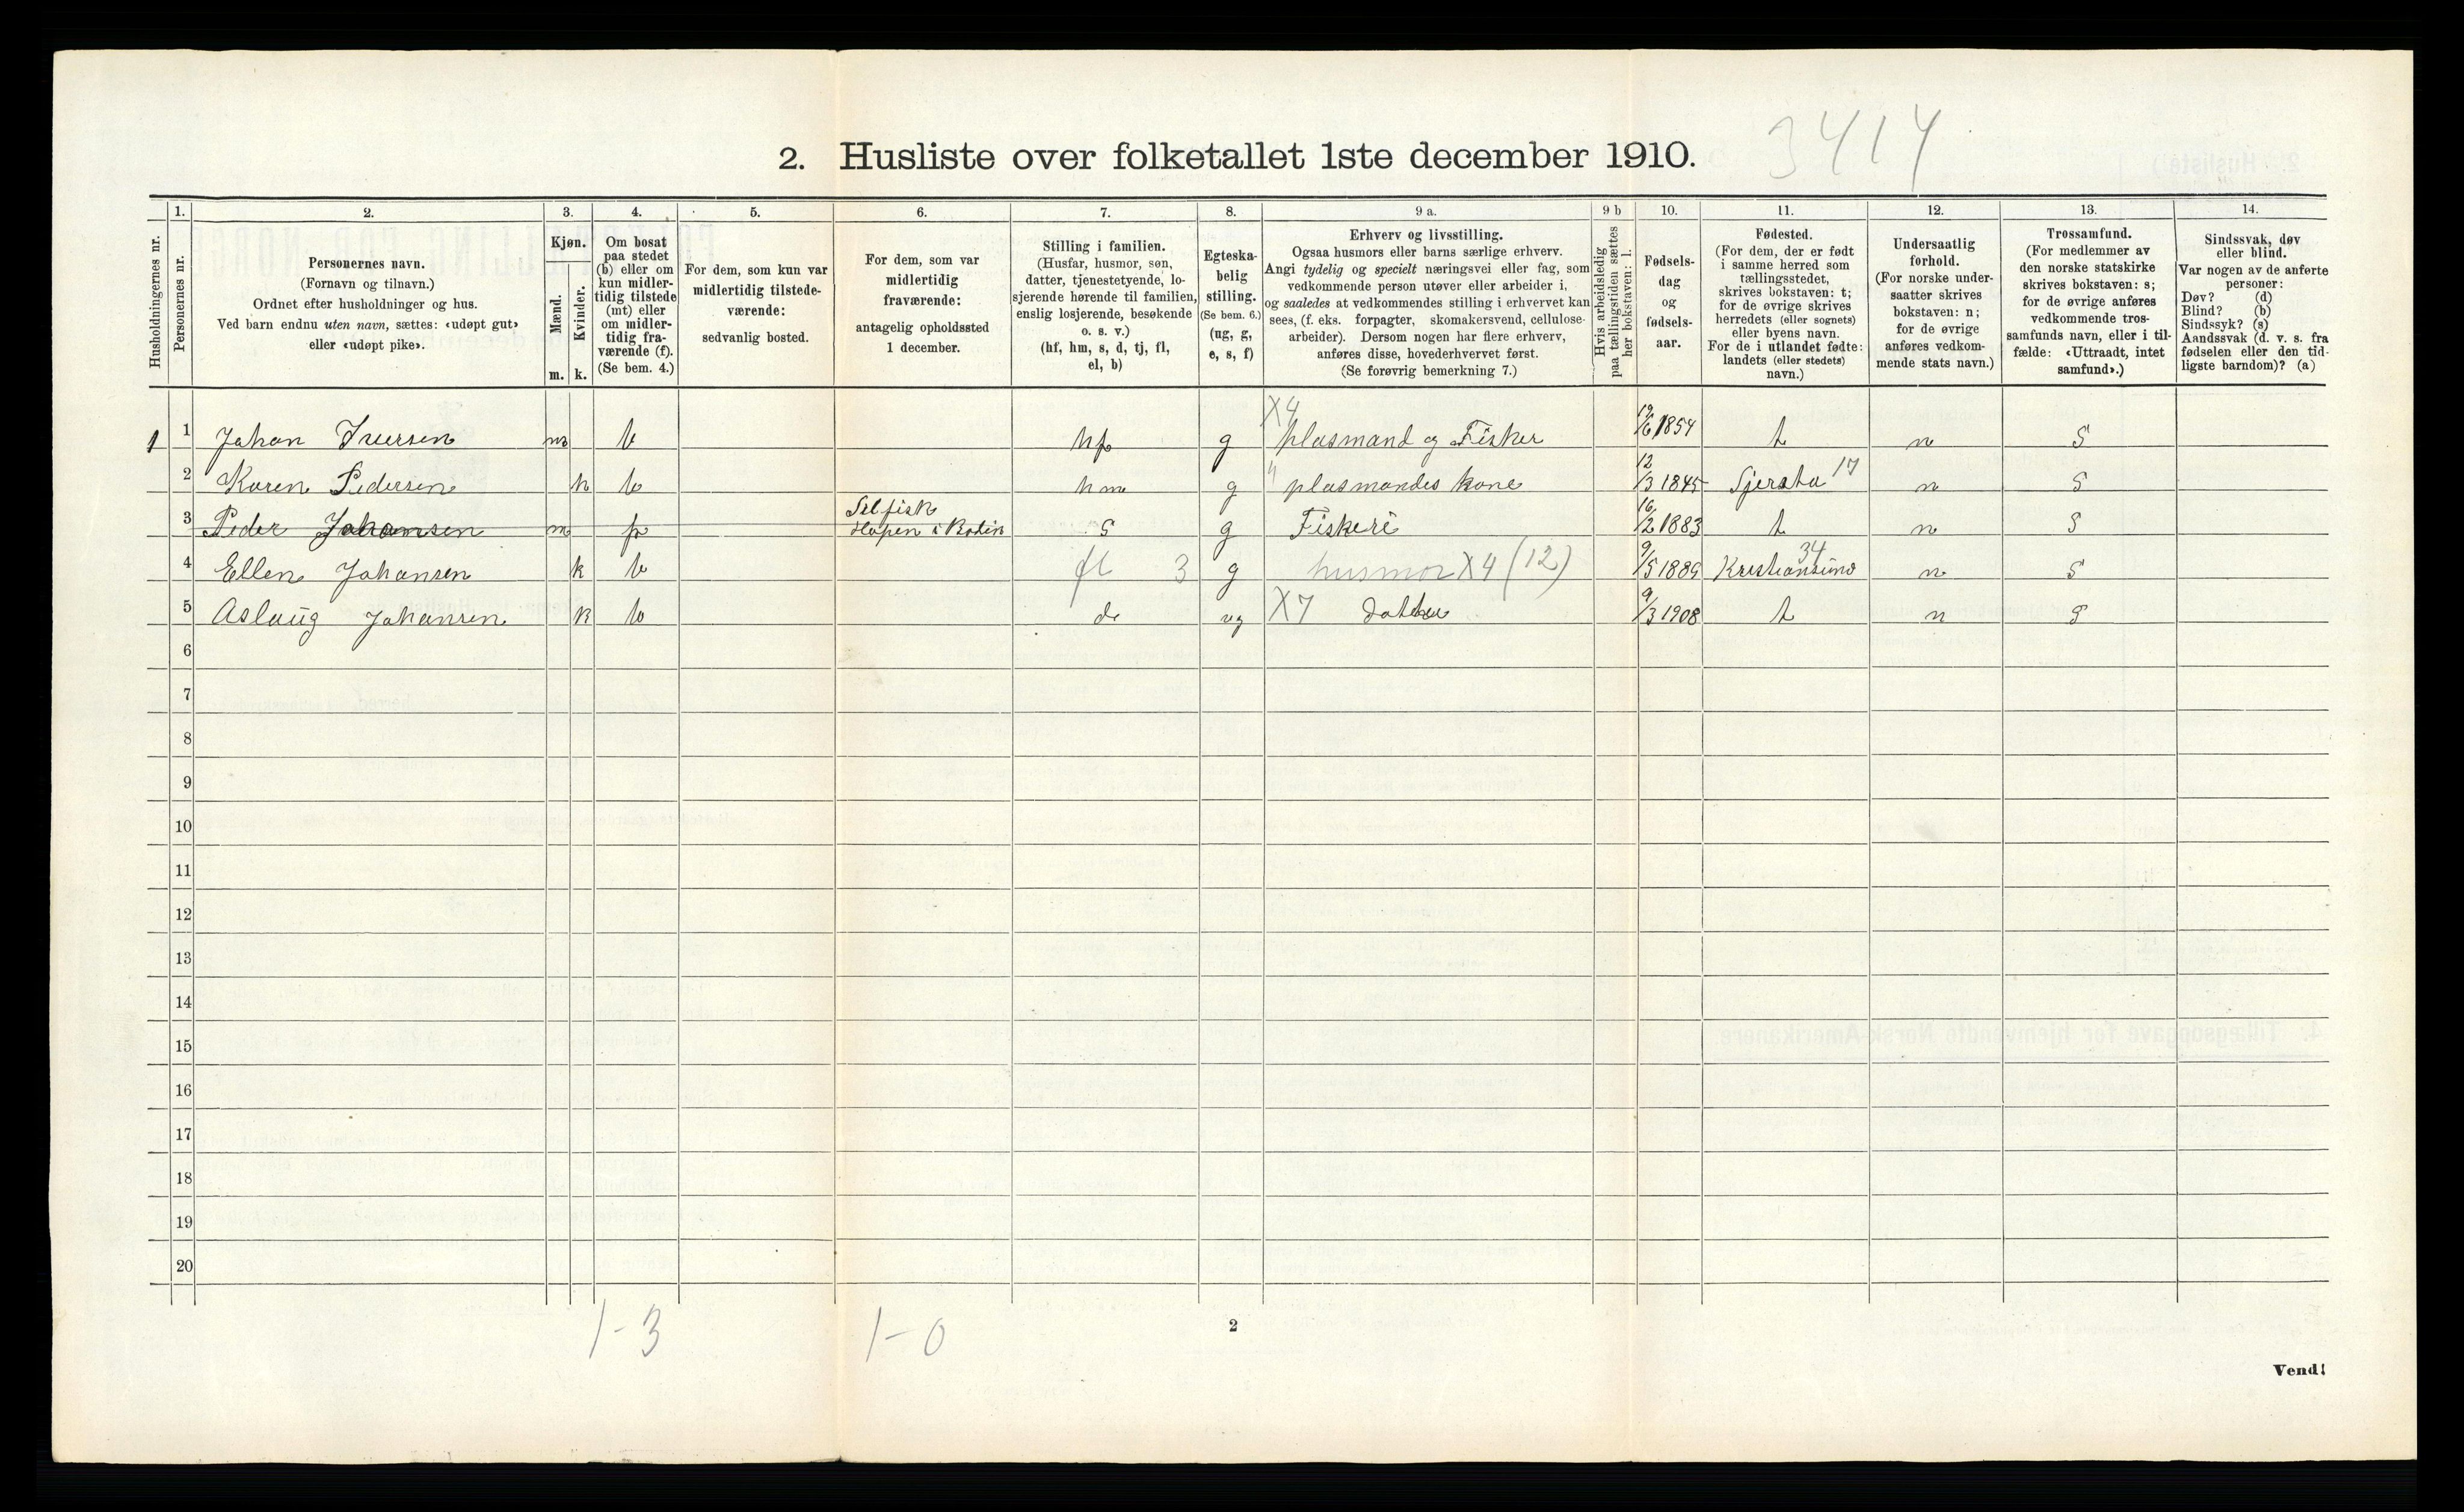 2. Husliste over folketallet 1ste december 1910. 3414
Husholdningernes nr.
1. Personernes nr.
2. Personernes navn. (Fornavn og tilnavn.) Ordnet efter husholdninger og hus. Ved barn endnu uten navn, sættes: «udøpt gut» eller «udøpt pike».
3. Kjøn. Mænd. m. Kvinder. k.
4. Om bosat paa stedet (b) eller om kun midlertidig tilstede (mt) eller om midlertidig fraværende (f). (Se bem. 4.)
5. For dem, som kun var midlertidig tilstedeværende: sedvanlig bosted.
6. For dem, som var midlertidig fraværende: antagelig opholdssted 1 december.
7. Stilling i familien. (Husfar, husmor, søn, datter, tjenestetyende, losjerende hørende til familien, enslig losjerende, besøkende o. s. v.) (hf, hm, s, d, tj, fl, el, b)
8. Egteskabelig stilling. (Se bem. 6.) (ug, g, e, s, f)
9 a. Erhverv og livsstilling. Ogsaa husmors eller barns særlige erhverv. Angi tydelig og specielt næringsvei eller fag, som vedkommende person utøver eller arbeider i, og saaledes at vedkommendes stilling i erhvervet kan sees, (f. eks. forpagter, skomakersvend, cellulosearbeider). Dersom nogen har flere erhverv, anføres disse, hovederhvervet først. (Se forøvrig bemerkning 7.)
9 b Hvis arbeidsledig paa tællingstiden sættes her bokstaven: l.
10. Fødselsdag og fødselsaar.
11. Fødested. (For dem, der er født i samme herred som tællingsstedet, skrives bokstaven: t; for de øvrige skrives herredets (eller sognets) eller byens navn. For de i utlandet fødte: landets (eller stedets) navn.)
12. Undersaatlig forhold. (For norske undersaatter skrives bokstaven: n; for de øvrige anføres vedkommende stats navn.)
13. Trossamfund. (For medlemmer av den norske statskirke skrives bokstaven: s; for de øvrige anføres vedkommende trossamfunds navn, eller i tilfælde: «Uttraadt, intet samfund».)
14. Sindssvak, døv eller blind. Var nogen av de anførte personer: Døv? (d) Blind? (b) Sindssyk? (s) Aandssvak (d. v. s. fra fødselen eller den tidligste barndom)? (a)
1 1 Johan Iversen m b hf g X4 plasmand og Fisker 19/6 1854 t n S
2 Karen Pedersen k b hm g " plasmandes kone 12/3 1845 17 n S
3 Peder Johansen m f Sildfisk Hopen i Bodin S g Fiskeri 16/2 1883 t n S
4 Ellen Johansen k b fl 3 g husmor X4 (12) 9/5 1889 Kristiansund 34 n S
5 Aslaug Johansen k b d ug X7 Datter 9/3 1908 t n S
6
7
8
9
10
11
12
13
14
15
16
17
18
19
20
1-3 1-0 2
Vend!